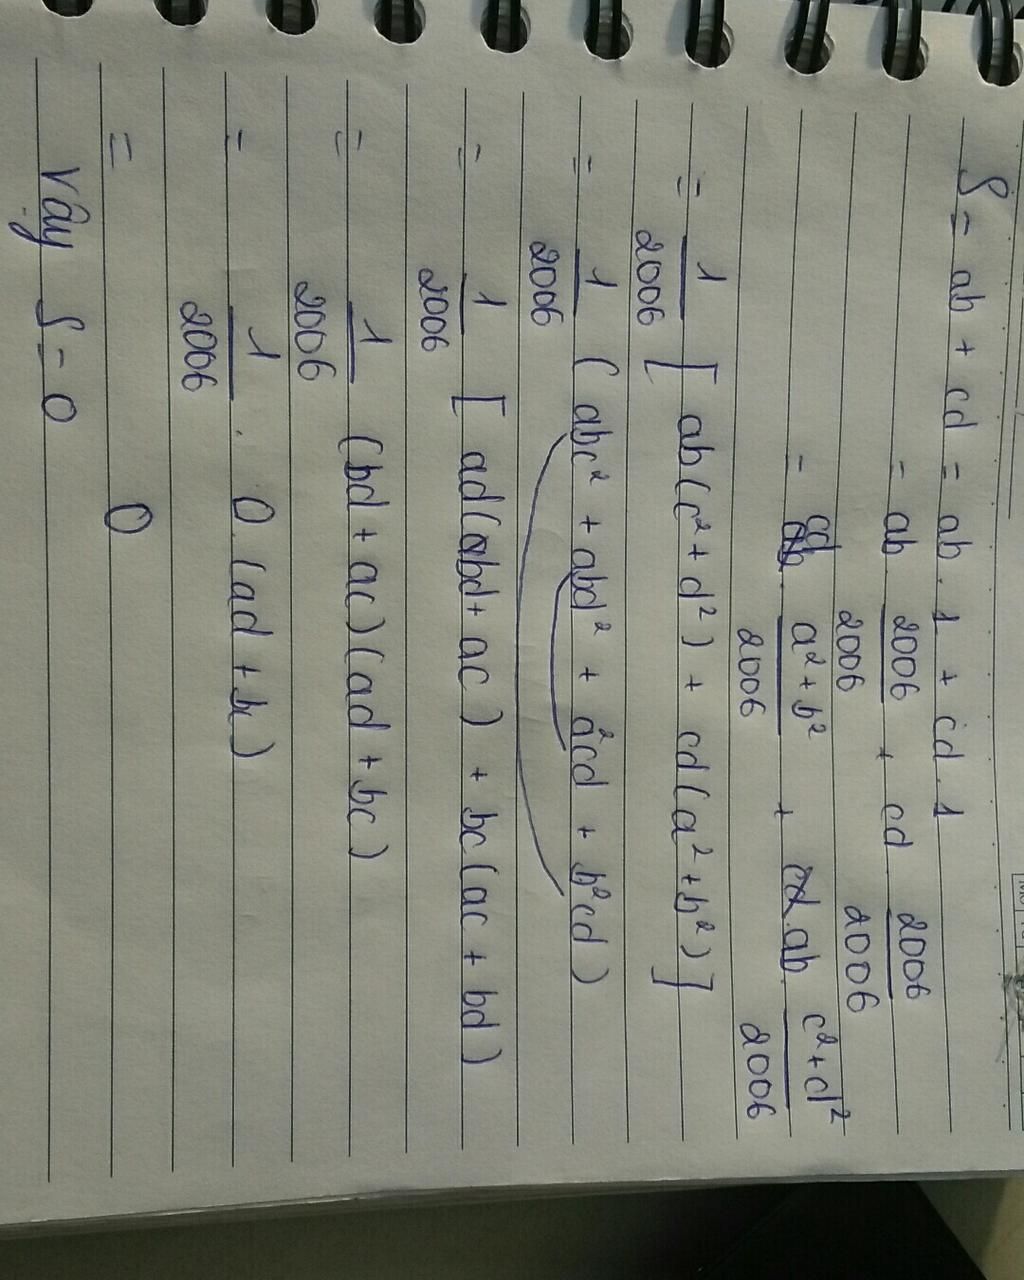 S = ab + cd = ab . 1 + cd . 1
= ab . 2006/2006 + cd . 2006/2006
= cd . a² + b²/2006 + ab . c² + d²/2006
= 1/2006 [ ab(c² + d²) + cd(a² + b²) ]
= 1/2006 ( abc² + abd² + a²cd + b²cd )
= 1/2006 [ ad(abd + ac) + bc(ac + bd)
= 1/2006 (bd + ac)(ad + bc)
= 1/2006 . 0 . (ad + bc)
= 0
Vậy S = 0